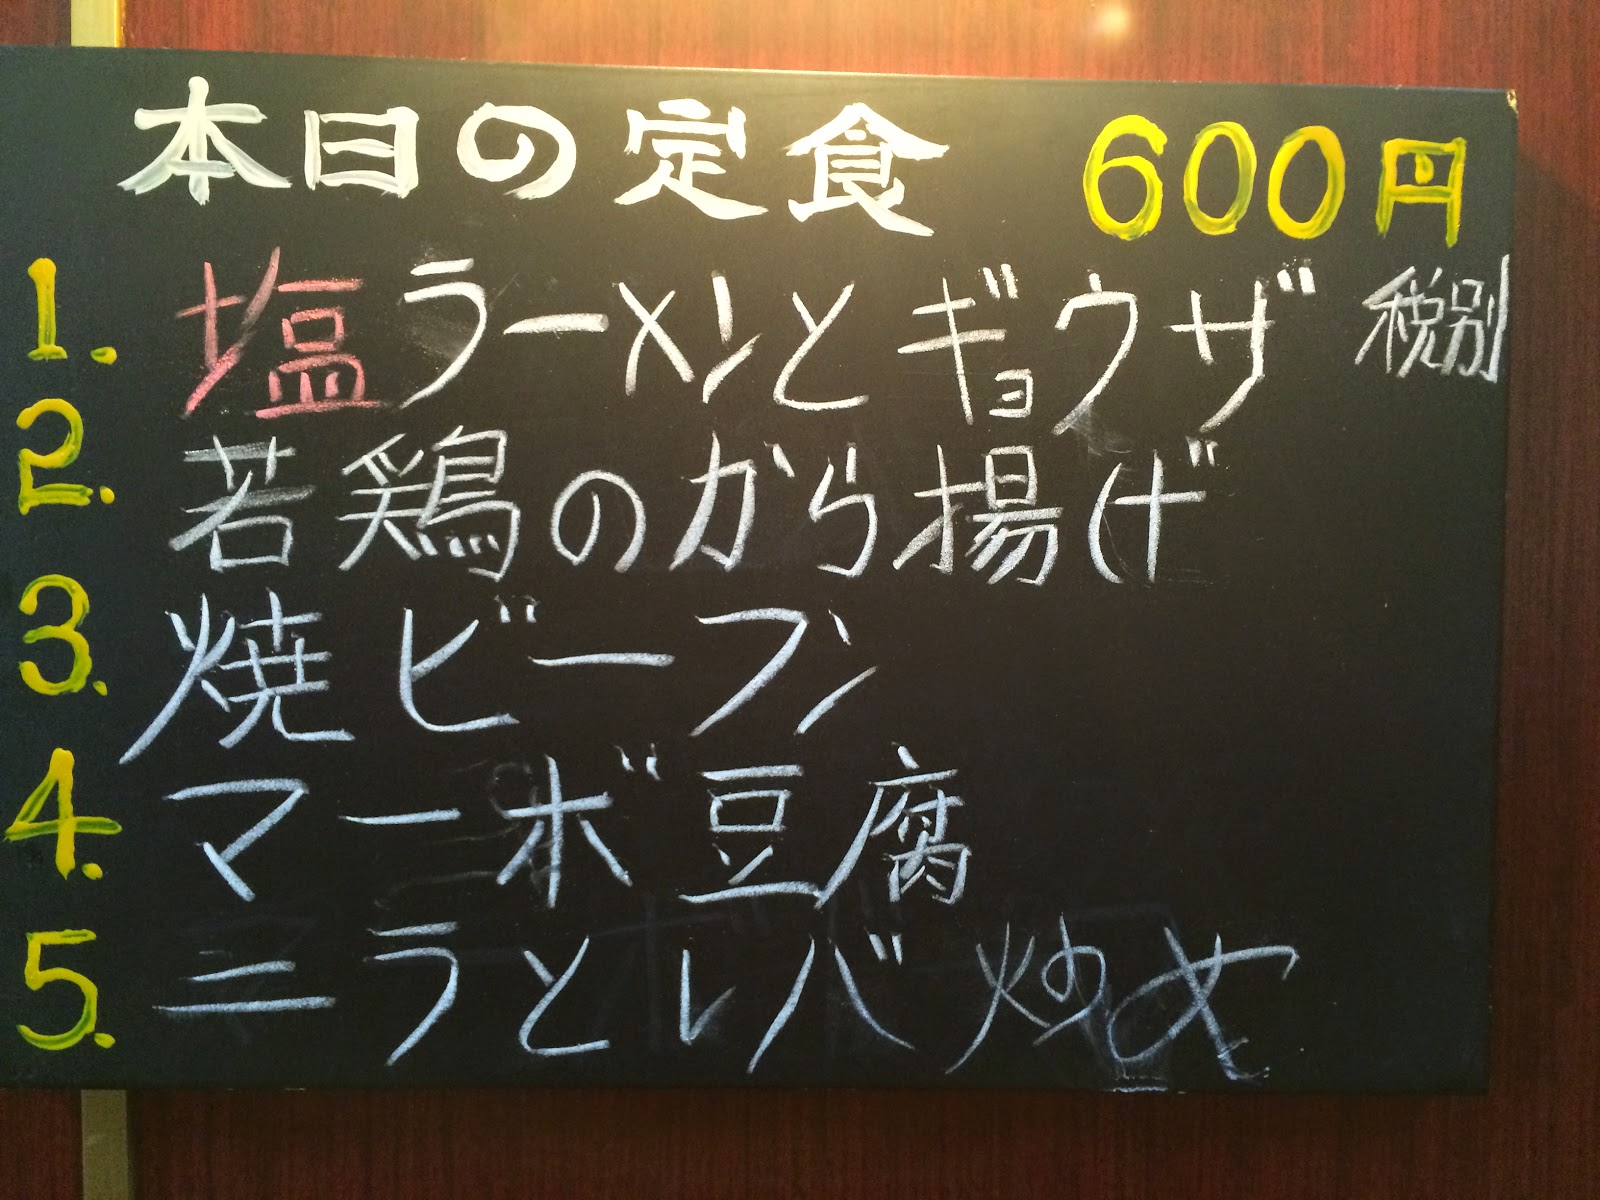 本日の定食 600円
1. 塩ラーメンとギョウザ 税別
2. 若鶏のから揚げ
3. 焼ビーフン
4. マーボ豆腐
5. ニラとレバ炒め